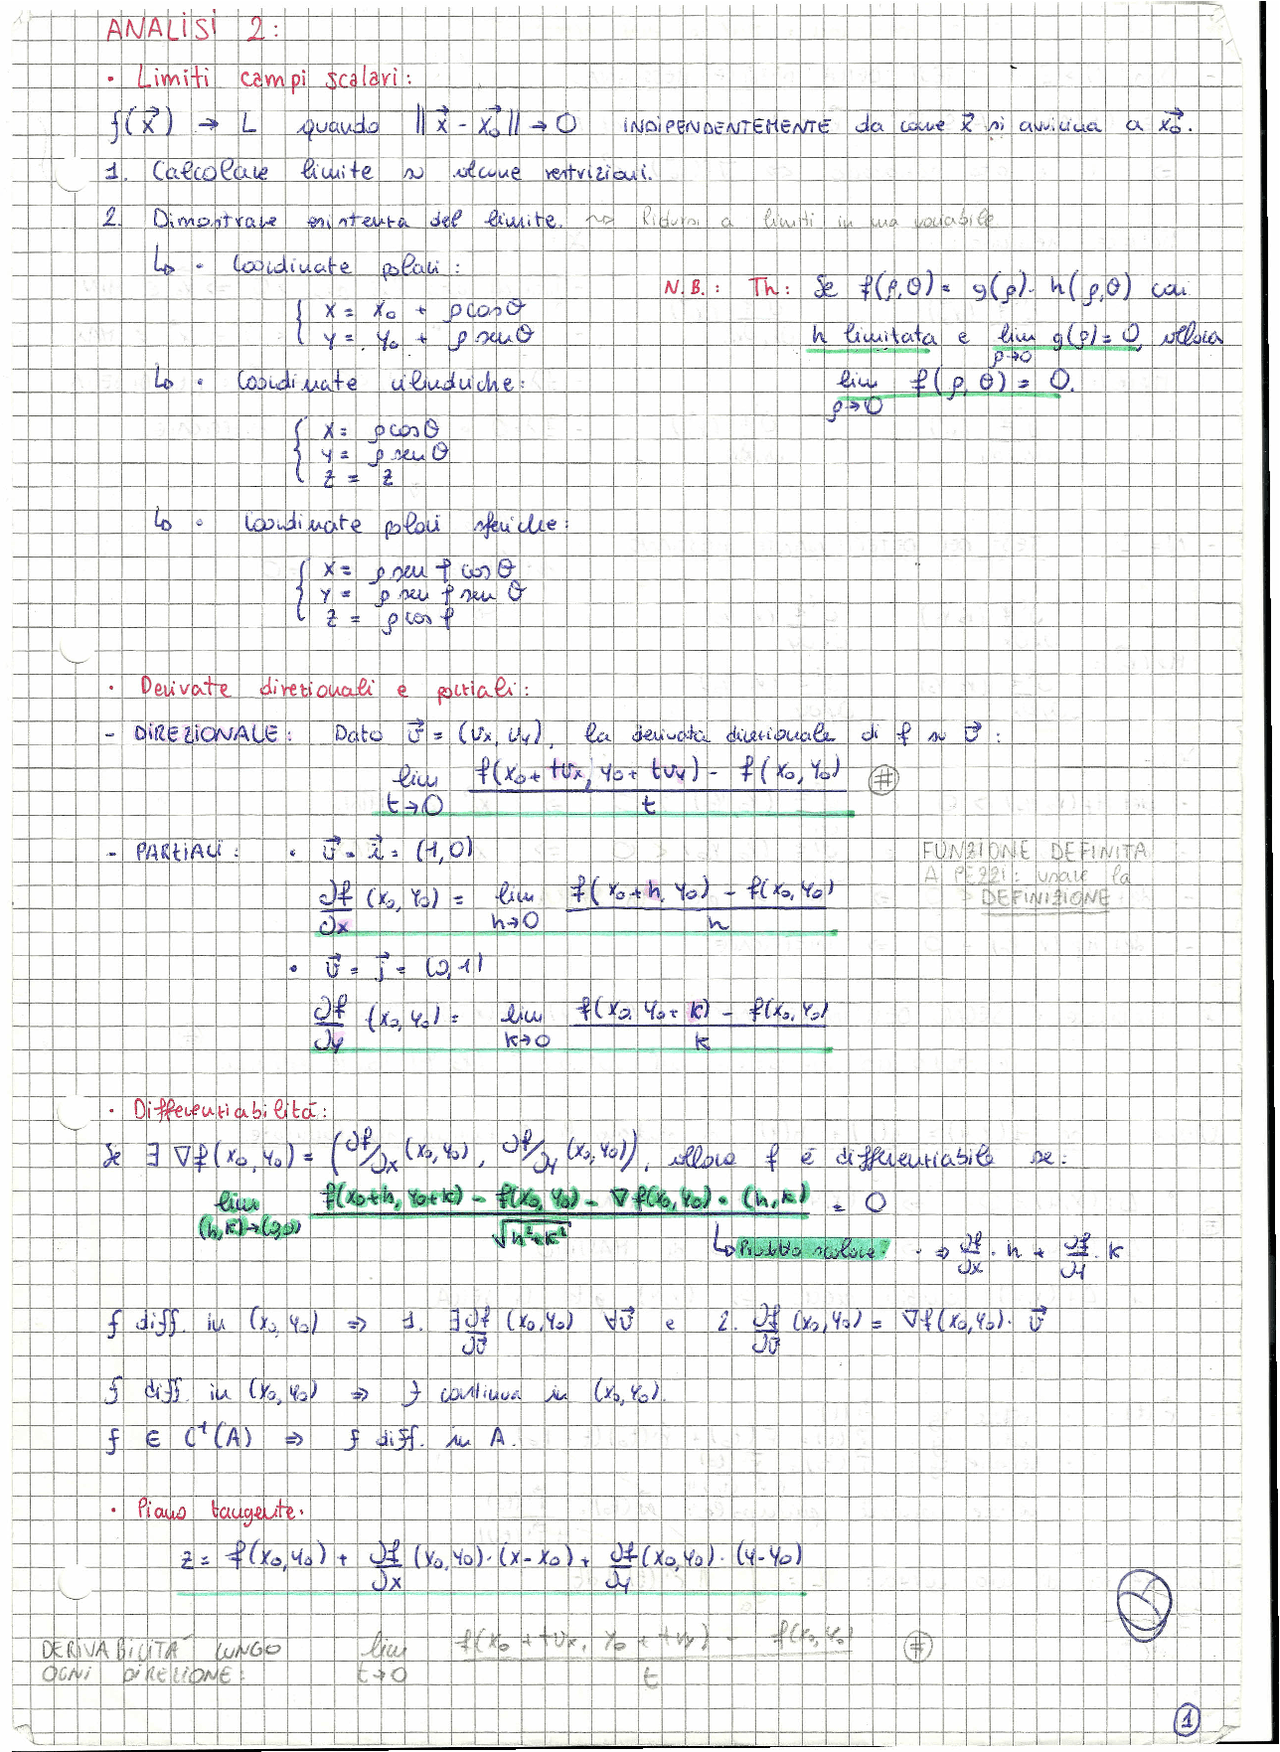 ANALISI 2:
• Limiti campi scalari:
f(x⃗) → L quando ‖x⃗ - x⃗₀‖ → 0 INDIPENDENTEMENTE da come x⃗ si avvicina a x⃗₀.
1. Calcolare limite su alcune restrizioni.
2. Dimostrare esistenza del limite. ~> Ridursi a limiti in una variabile
↳ • Coordinate polari:
{ x = x₀ + ρ cos θ
y = y₀ + ρ sen θ
N.B.: Th: Se f(ρ,θ) = g(ρ) · h(ρ,θ) con
h limitata e lim ρ→0 g(ρ) = 0, allora
lim ρ→0 f(ρ,θ) = 0.
↳ • Coordinate cilindriche:
{ x = ρ cos θ
y = ρ sen θ
z = z
↳ • Coordinate polari sferiche:
{ x = ρ sen φ cos θ
y = ρ sen φ sen θ
z = ρ cos φ
• Derivate direzionali e parziali:
- DIREZIONALE: Dato v⃗ = (vx, vy), la derivata direzionale di f su v⃗:
lim t→0 (f(x₀ + tvx, y₀ + tvy) - f(x₀, y₀)) / t #
- PARZIALI: • v⃗ = i⃗ = (1,0)
∂f/∂x (x₀, y₀) = lim h→0 (f(x₀ + h, y₀) - f(x₀, y₀)) / h
FUNZIONE DEFINITA
A PEZZI: usare la
DEFINIZIONE
• v⃗ = j⃗ = (0,1)
∂f/∂y (x₀, y₀) = lim k→0 (f(x₀, y₀ + k) - f(x₀, y₀)) / k
• Differenziabilità:
Se ∃ ∇f(x₀, y₀) = (∂f/∂x (x₀, y₀), ∂f/∂y (x₀, y₀)), allora f è differenziabile se:
lim (h,k)→(0,0) (f(x₀+h, y₀+k) - f(x₀, y₀) - ∇f(x₀, y₀) · (h,k)) / √(h²+k²) = 0
↳ Prodotto scalare. ⇒ ∂f/∂x · h + ∂f/∂y · k
f diff. in (x₀, y₀) ⇒ 1. ∃ ∂f/∂v⃗ (x₀, y₀) ∀v⃗ e 2. ∂f/∂v⃗ (x₀, y₀) = ∇f(x₀, y₀) · v⃗
f diff. in (x₀, y₀) ⇒ f continua in (x₀, y₀).
f ∈ C¹(A) ⇒ f diff. in A.
• Piano tangente.
z = f(x₀, y₀) + ∂f/∂x (x₀, y₀) · (x - x₀) + ∂f/∂y (x₀, y₀) · (y - y₀)
DERIVABILITÀ LUNGO
OGNI DIREZIONE:
lim t→0 (f(x₀ + tvx, y₀ + tvy) - f(x₀, y₀)) / t #
1